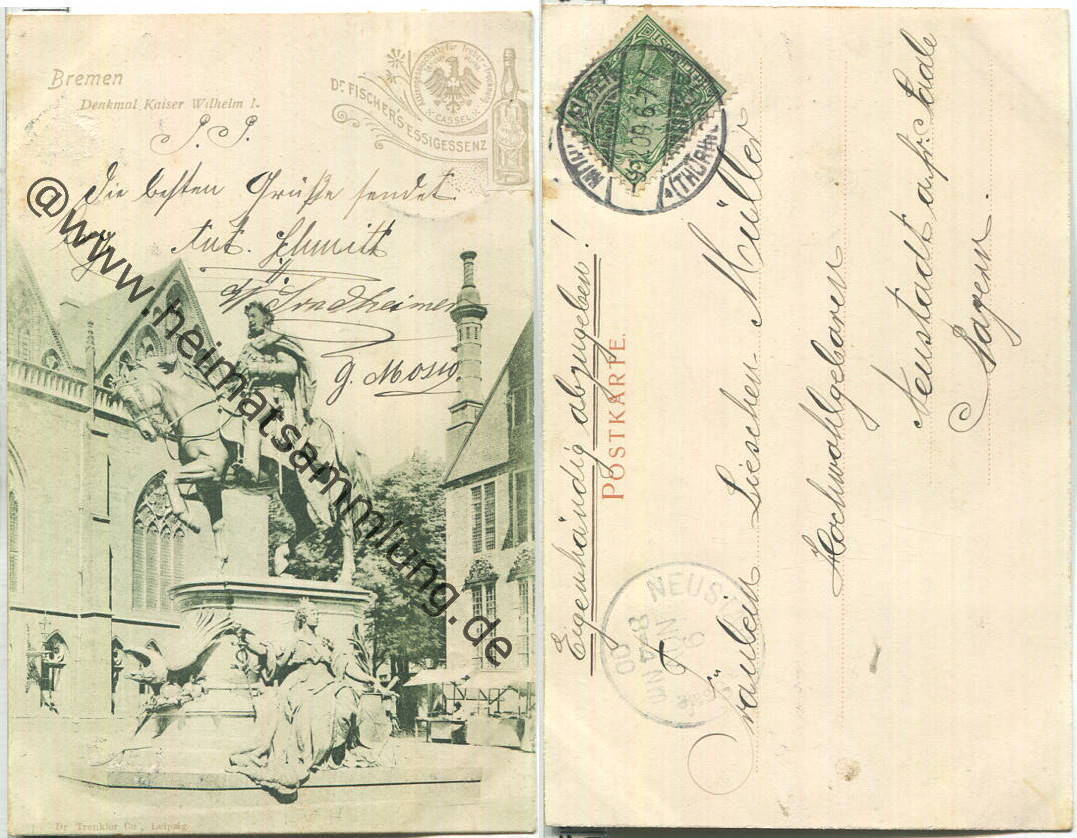 Bremen
Denkmal Kaiser Wilhelm I.
DR. FISCHER'S ESSIGESSENZ
CASSEL
P. P.
Die besten Grüße sendet
Ant. Schmitt
G.
@www.heimatsammlung.de
Dr. Trenkler Co., Leipzig
(THÜRIN
Eigenhändig abzugeben!
POSTKARTE.
Fräulein Lieschen Müller
Hochwohlgeboren
Neustadt a/fr. Saale
Bayern.
NEUST